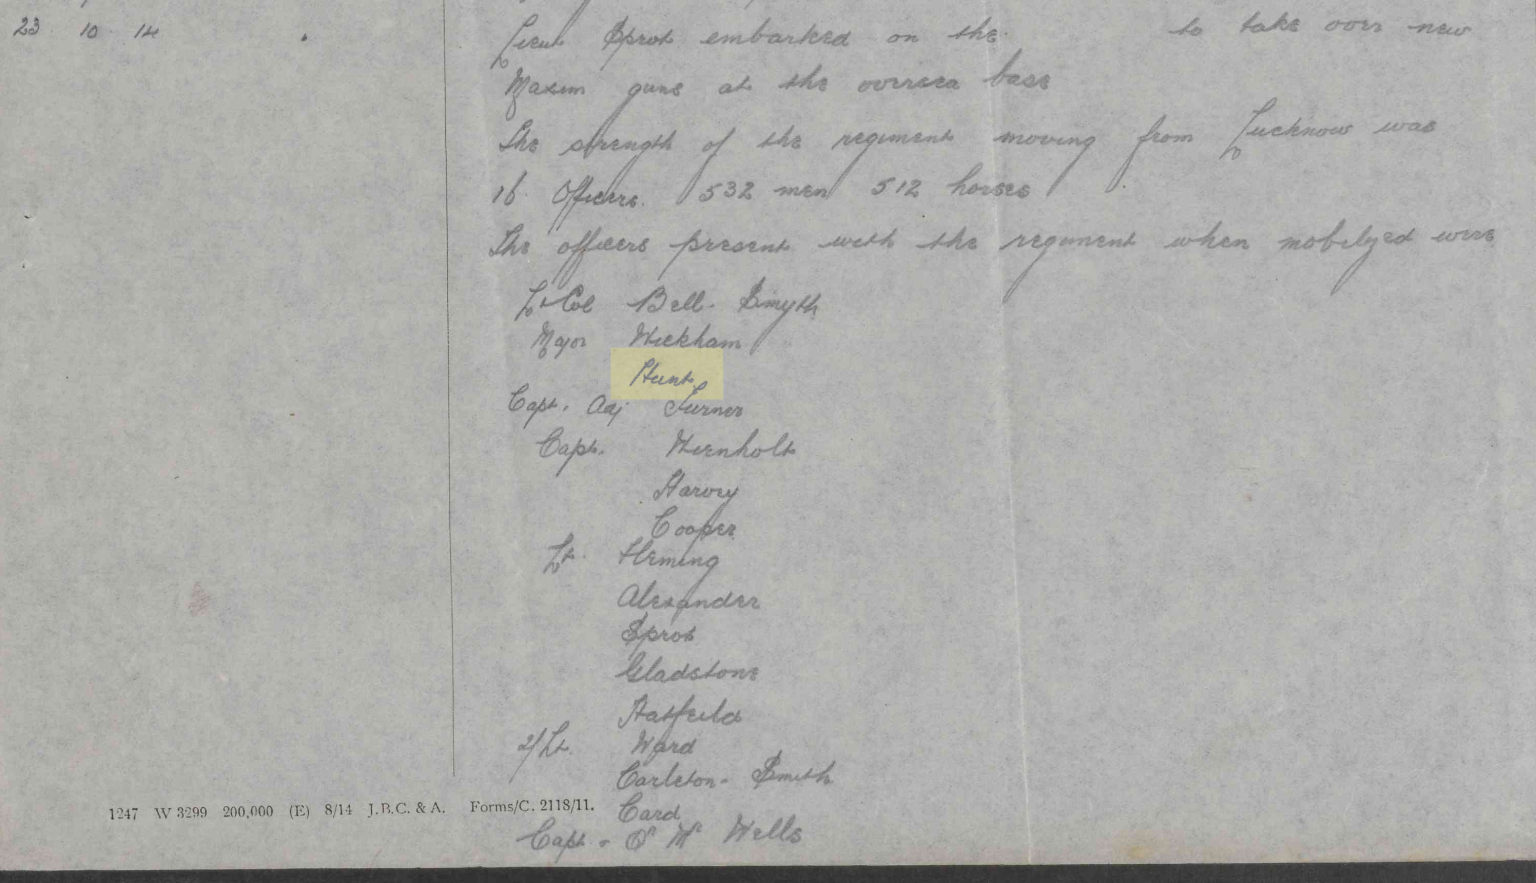 23 10 14 Lieut Sprot embarked on the to take over new
Maxim guns at the oversea base
The strength of the regiment moving from Lucknow was
16 Officers. 532 men 512 horses
The officers present with the regiment when mobilyed were
Lt Col Bell-Smyth
Major Wickham
Hunt
Capt. Adj Turner
Capt. Wienholt
Harvey
Cooper
Lt. Fleming
Alexander
Sprot
Gladstone
Hatfeild
2/Lt. Ward
Carleton-Smith
Card
Capt - Q M Wells
1247 W 3299 200,000 (E) 8/14 J.B.C. & A. Forms/C. 2118/11.